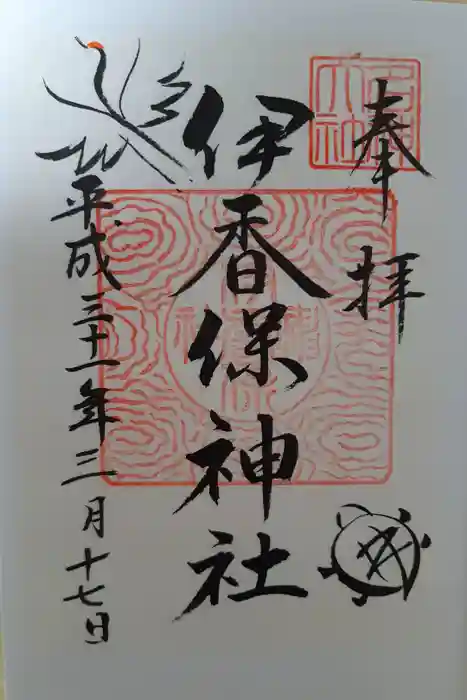 奉拝
伊香保神社
平成三十一年三月十七日